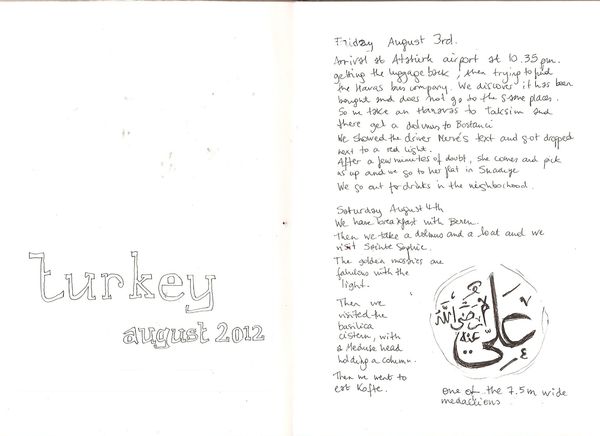 turkey
august 2012
Friday August 3rd.
Arrival at Atatürk airport at 10.35 pm.
getting the luggage back, then trying to find
the Havas bus company. We discover it has been
bought and does not go to the same places.
So we take an Havatas to Taksim and
there get a dolmus to Bostanci
We showed the driver Merve's text and got dropped
next to a red light.
After a few minutes of doubt, she comes and pick
us up and we go to her flat in Suadiye
We go out for drinks in the neighborhood.
Saturday August 4th
We have breakfast with Beren.
Then we take a dolmus and a boat and we
visit Sainte Sophie.
The golden mosaics are
fabulous with the
light.
Then we
visited the
basilica
cistern, with
a Meduse head
holding a column.
Then we went to
eat Kofte.
علي رضي الله عنه
one of the 7.5m wide
medallions